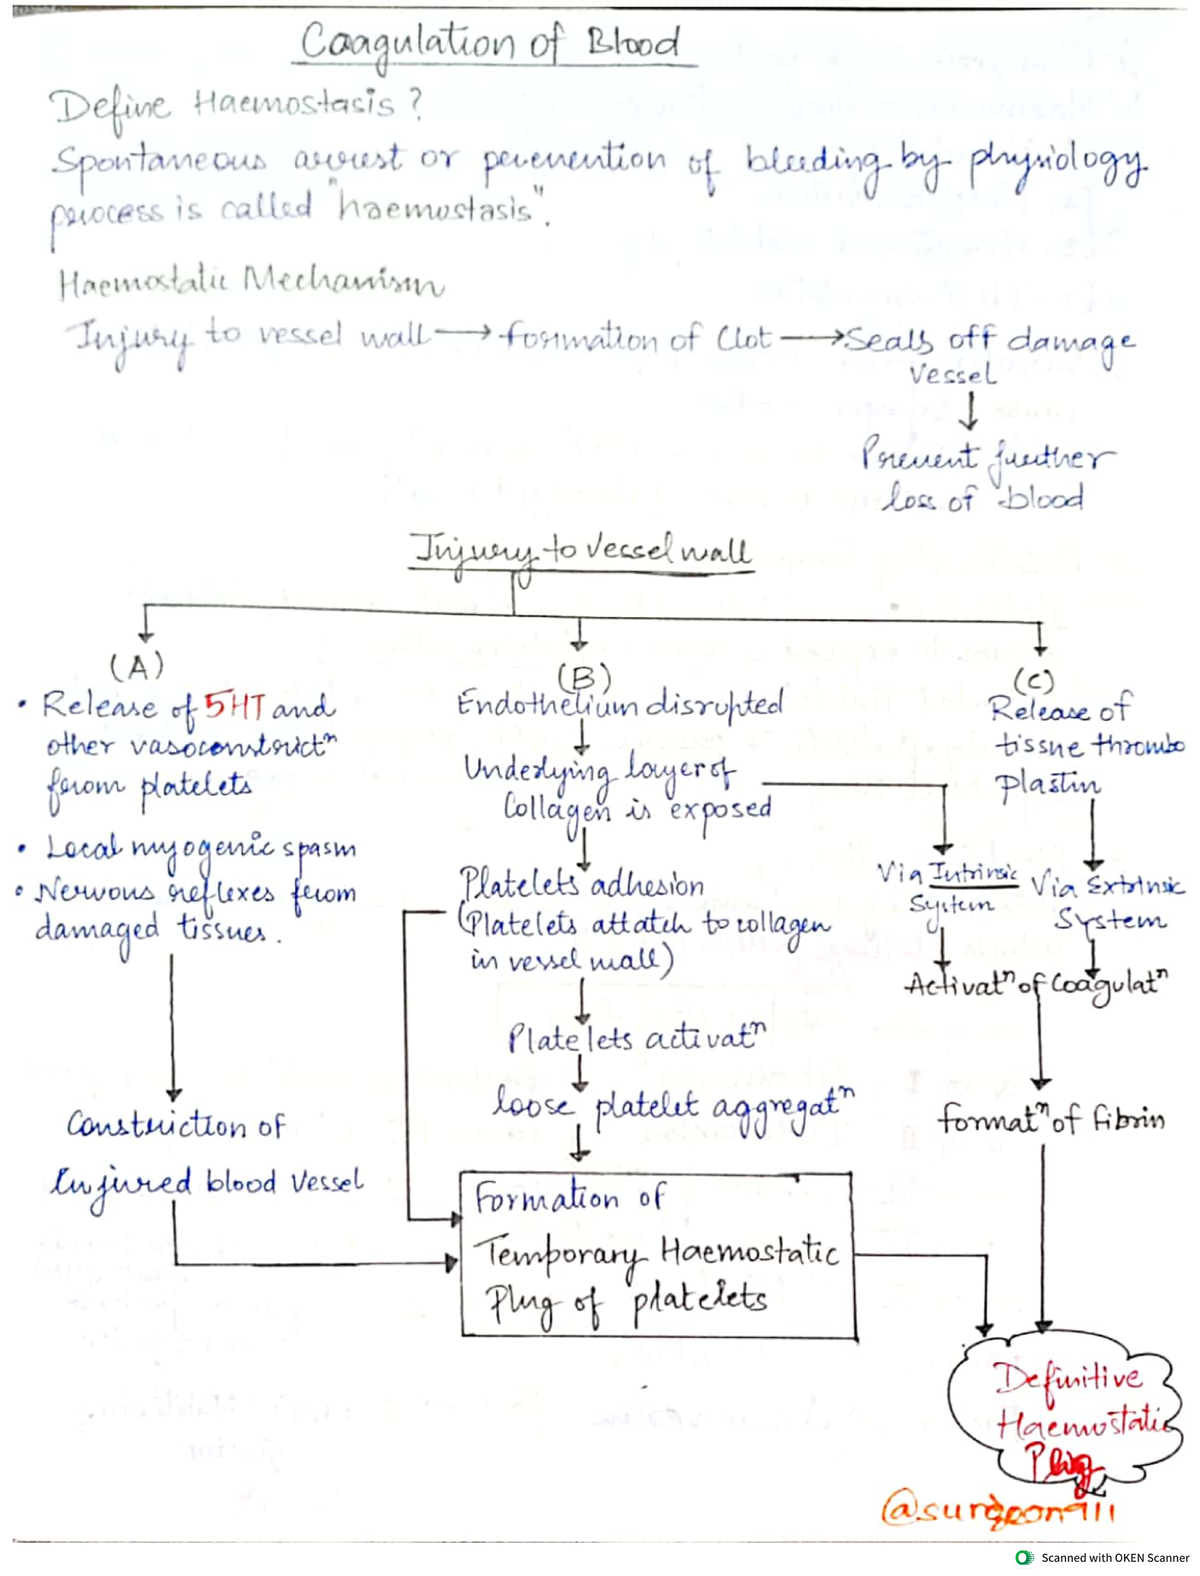 Coagulation of Blood
Define Haemostasis ?
Spontaneous arrest or prevenention of bleeding by physiology
process is called "haemostasis".
Haemostatic Mechanism
Injury to vessel wall → formation of Clot → Seals off damage
Vessel
↓
Prevent further
loss of blood
Injury to vessel wall
(A)
• Release of 5HT and
other vasoconstrictⁿ
from platelets
• Local myogenic spasm
• Nervous reflexes from
damaged tissues.
Constriction of
Injured blood Vessel
(B)
Endothelium disrupted
Underlying layer of
Collagen is exposed
Platelets adhesion
(Platelets attatch to collagen
in vessel wall)
Platelets activatⁿ
loose platelet aggregatⁿ
Formation of
Temporary Haemostatic
Plug of platelets
(C)
Release of
tissue thrombo
plastin
Via Intrinsic
System
Via Extrinsic
System
Activatⁿ of Coagulatⁿ
formatⁿ of fibrin
Definitive
Haemostatic
Plug
@surgeon911
Scanned with OKEN Scanner